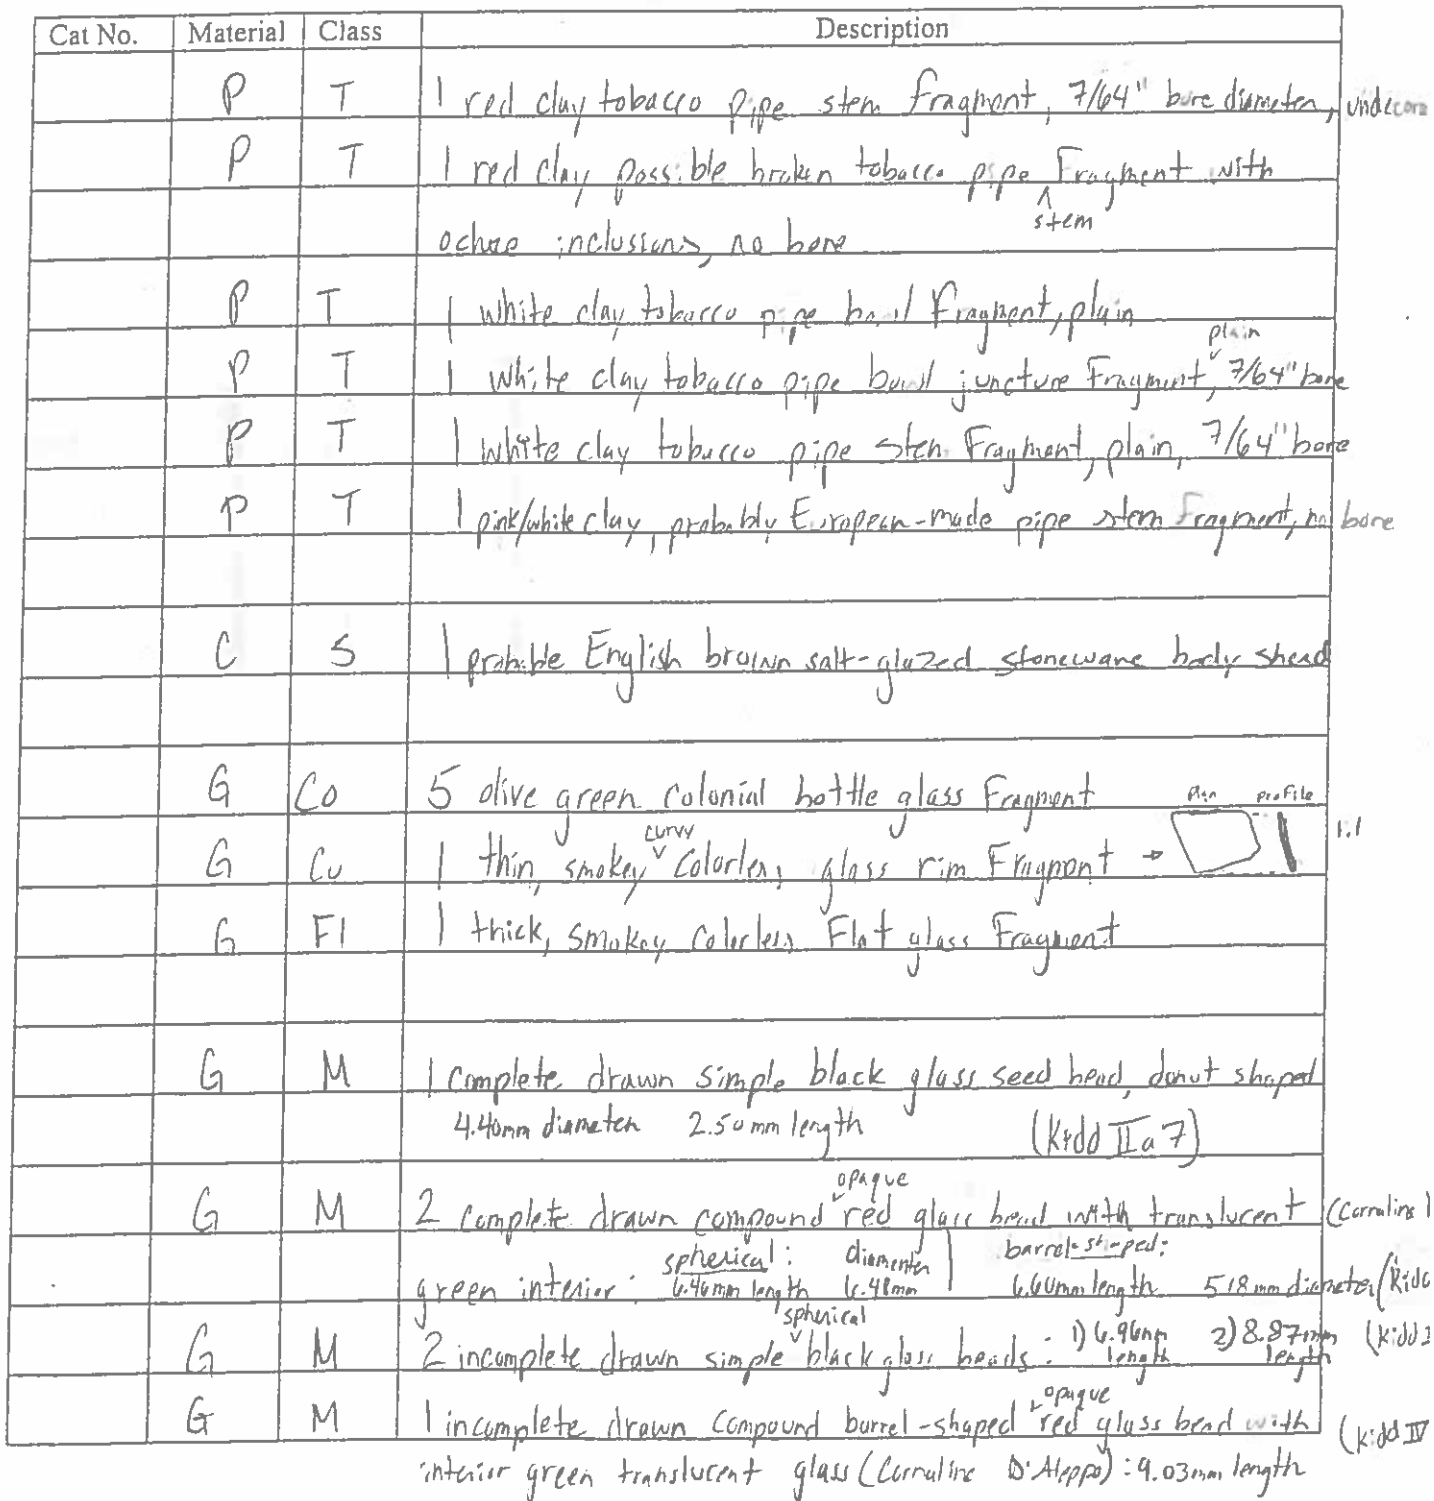 Cat No. Material Class Description
P T 1 red clay tobacco pipe stem fragment, 7/64" bore diameter, undecora
P T 1 red clay possible broken tobacco pipe stem Fragment with
ochre inclusions, no bore
P T 1 white clay tobacco pipe bowl Fragment, plain
P T 1 white clay tobacco pipe bowl juncture Fragment, plain 7/64" bore
P T 1 white clay tobacco pipe stem Fragment, plain, 7/64" bore
P T 1 pink/white clay, probably European-made pipe stem Fragment, no bore
C S 1 probable English brown salt-glazed stoneware body sherd
G Co 5 olive green colonial bottle glass Fragment
plan profile
G Cu 1 thin, smokey curvy colorless glass rim Fragment → 1:1
G Fl 1 thick, smokey colorless Flat glass Fragment
G M 1 complete drawn simple black glass seed bead, donut shaped
4.40mm diameter 2.50mm length (Kidd IIa7)
G M 2 complete drawn compound opaque red glass bead with translucent (Cornaline
green interior: spherical: 6.46mm length diamenter 6.48mm barrel-shaped: 6.60mm length 5.18mm diameter (Kidd
G M 2 incomplete drawn simple spherical black glass beads: 1) 6.96mm length 2) 8.87mm length (Kidd
G M 1 incomplete drawn compound barrel-shaped opaque red glass bead with (Kidd IV
interior green translucent glass (Cornaline D'Aleppo): 9.03mm length